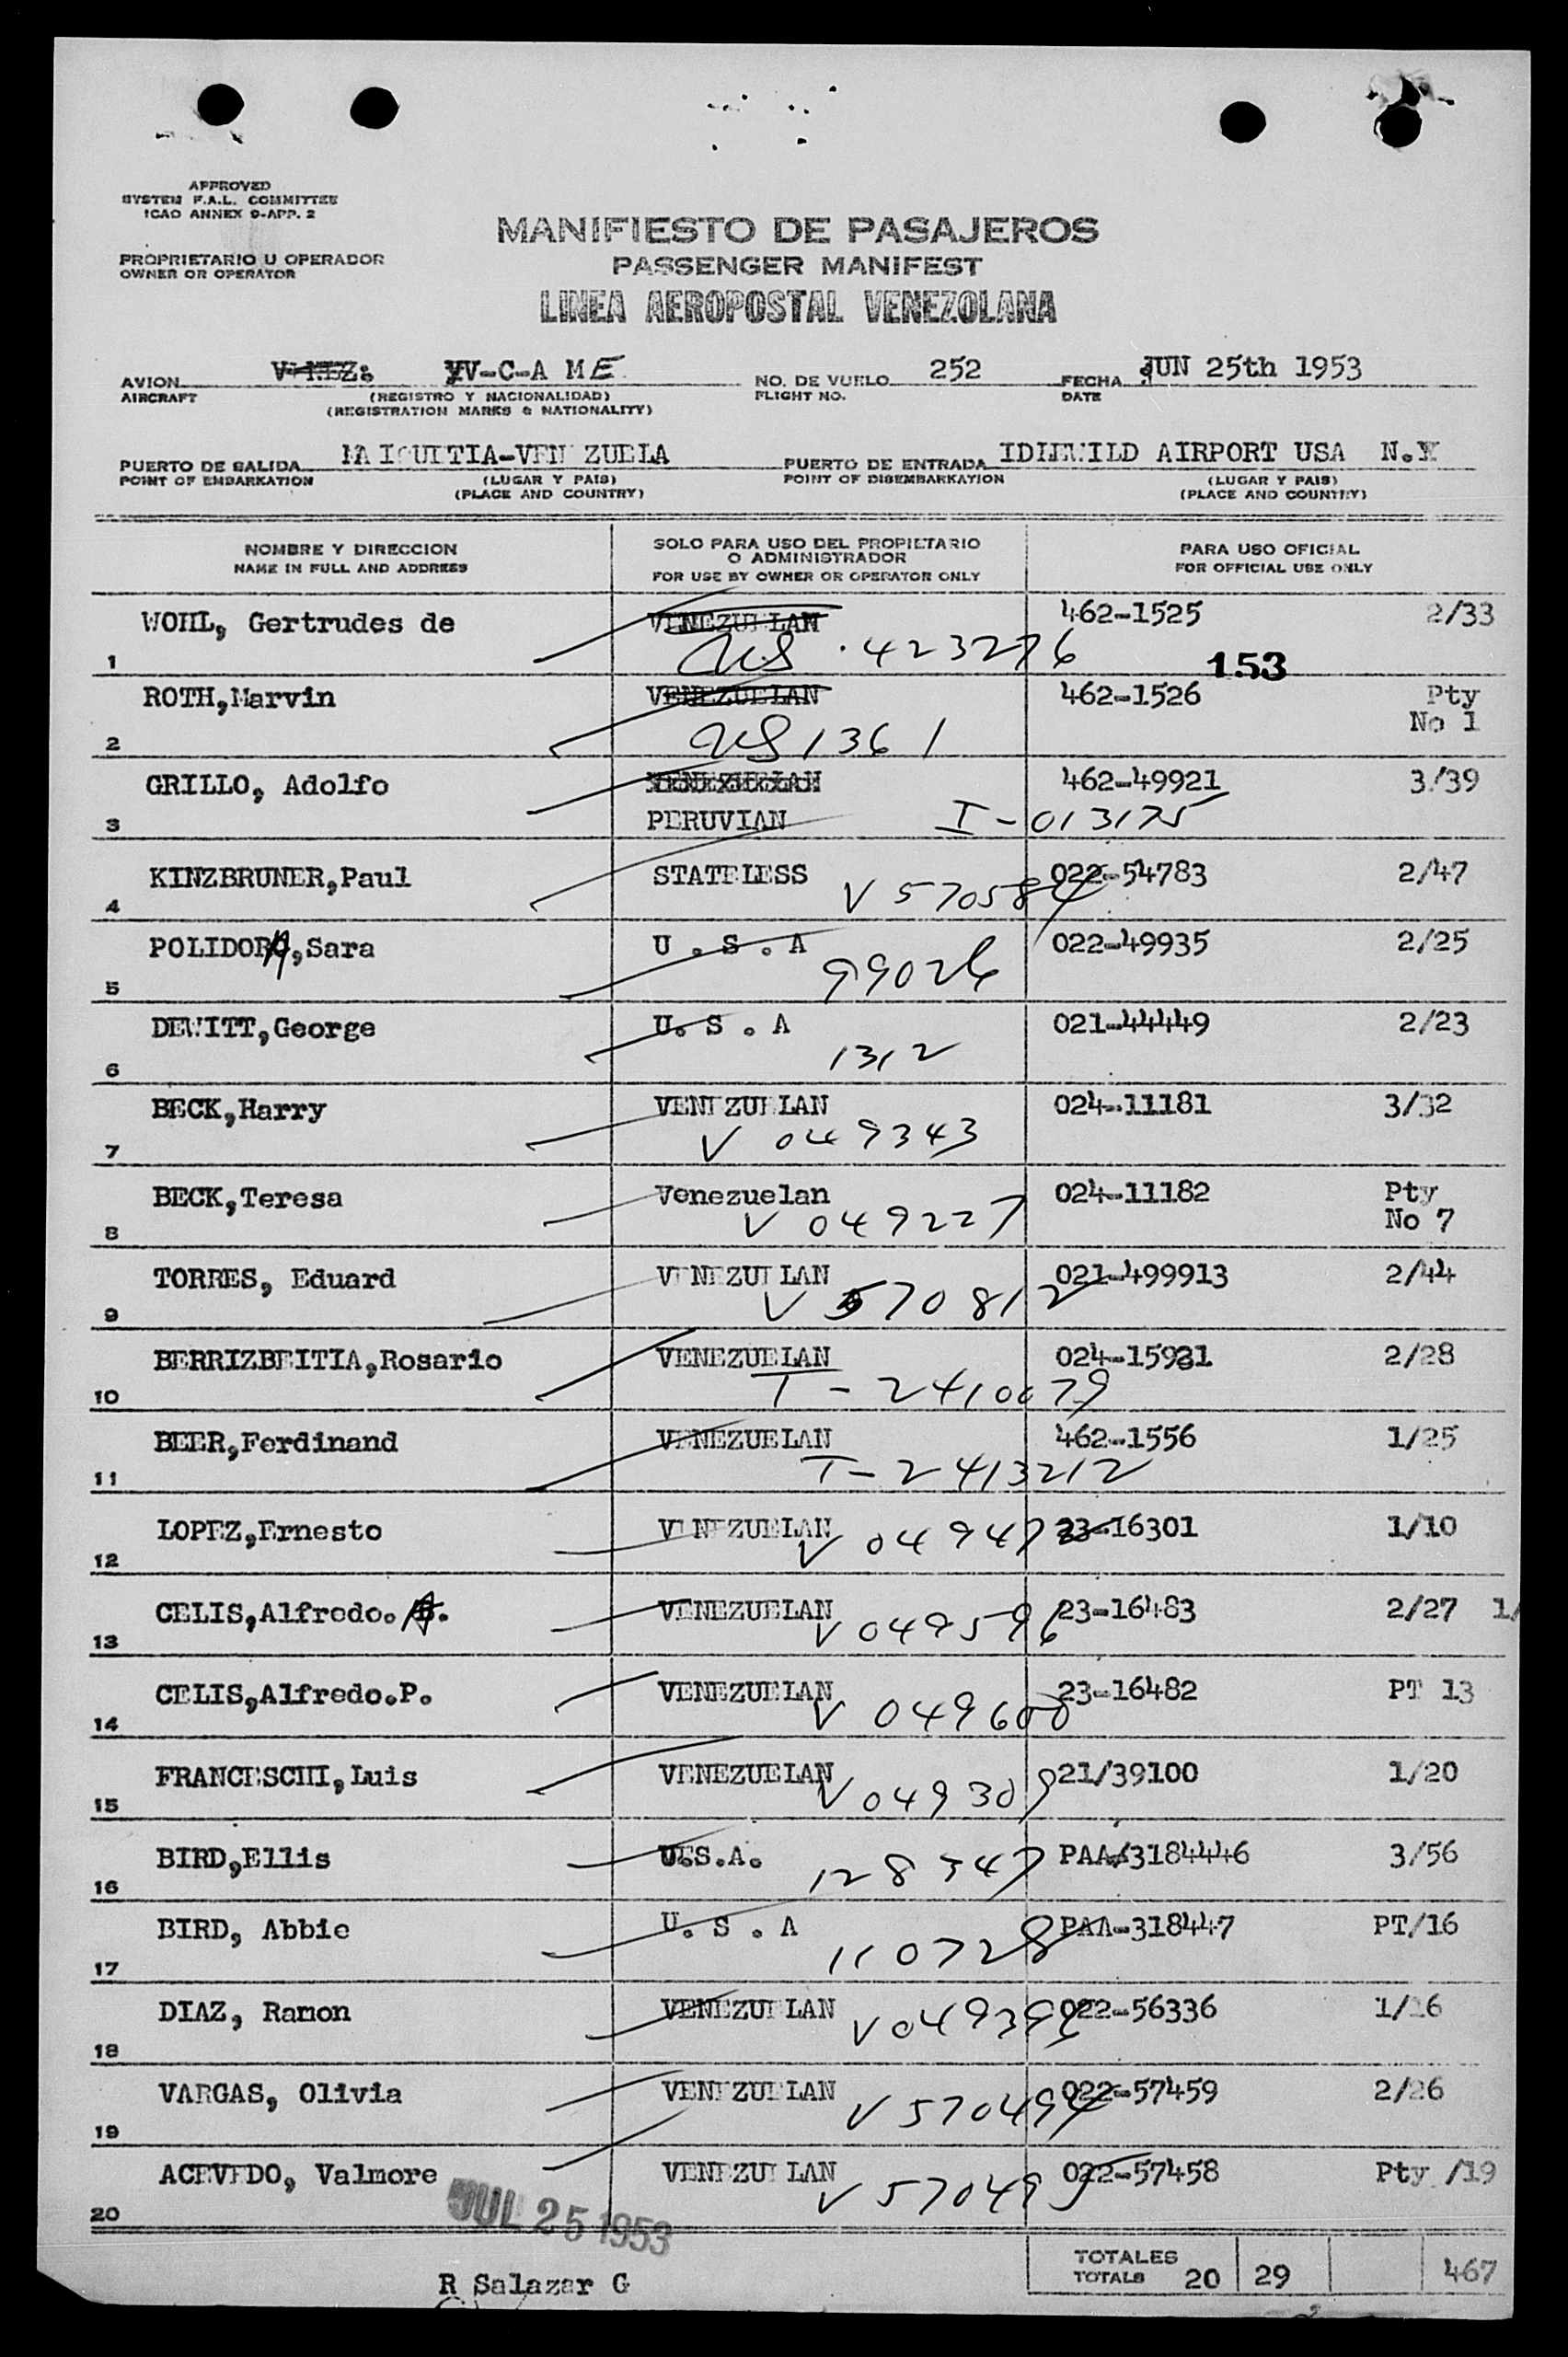 APPROVED
SYSTEM F.A.L. COMMITTEE
ICAO ANNEX 9-APP. 2
MANIFIESTO DE PASAJEROS
PASSENGER MANIFEST
LINEA AEROPOSTAL VENEZOLANA
PROPRIETARIO U OPERADOR
OWNER OR OPERATOR
AVION YV-C-A ME NO. DE VUELO 252 FECHA JUN 25th 1953
AIRCRAFT (REGISTRO Y NACIONALIDAD) FLIGHT NO. DATE
(REGISTRATION MARKS & NATIONALITY)
PUERTO DE SALIDA MAIQUITIA-VENEZUELA PUERTO DE ENTRADA IDLEWILD AIRPORT USA N.Y
POINT OF EMBARKATION (LUGAR Y PAIS) POINT OF DISEMBARKATION (LUGAR Y PAIS)
(PLACE AND COUNTRY) (PLACE AND COUNTRY)
NOMBRE Y DIRECCION SOLO PARA USO DEL PROPIETARIO PARA USO OFICIAL
O ADMINISTRADOR
NAME IN FULL AND ADDRESS FOR USE BY OWNER OR OPERATOR ONLY FOR OFFICIAL USE ONLY
WOHL, Gertrudes de VENEZUELAN 462-1525 2/33
1 US 423276 153
ROTH,Marvin VENEZUELAN 462-1526 Pty
2 US 1361 No 1
GRILLO, Adolfo VENEZUELAN 462-49921 3/39
3 PERUVIAN I-013175
KINZBRUNER,Paul STATELESS 022-54783 2/47
4 V 570584
POLIDORA,Sara U.S.A 022-49935 2/25
5 99026
DEWITT,George U.S.A 021-44449 2/23
6 1312
BECK,Harry VENEZUELAN 024-11181 3/32
7 V 049343
BECK,Teresa Venezuelan 024-11182 Pty
8 V 049227 No 7
TORRES, Eduard VENEZUELAN 021-499913 2/44
9 V 570812
BERRIZBEITIA,Rosario VENEZUELAN 024-15931 2/28
10 I-2410079
BEER,Ferdinand VENEZUELAN 462-1556 1/25
11 I-2413212
LOPEZ,Ernesto VENEZUELAN V 049472 23-16301 1/10
12
CELIS,Alfredo. A. VENEZUELAN 23-16483 2/27 1/
13 V 049596
CELIS,Alfredo.P. VENEZUELAN 23-16482 PT 13
14 V 049600
FRANCESCHI,Luis VENEZUELAN 21/39100 1/20
15 V 049309
BIRD,Ellis U.S.A. PAA/3184446 3/56
16 128347
BIRD, Abbie U.S.A PAA-318447 PT/16
17 110728
DIAZ, Ramon VENEZUELAN 022-56336 1/16
18 V 049395
VARGAS, Olivia VENEZUELAN 022-57459 2/26
19 V 570494
ACEVEDO, Valmore VENEZUELAN 022-57458 Pty /19
20 V 570495
JUL 25 1953
TOTALES
TOTALS 20 29 467
R Salazar G